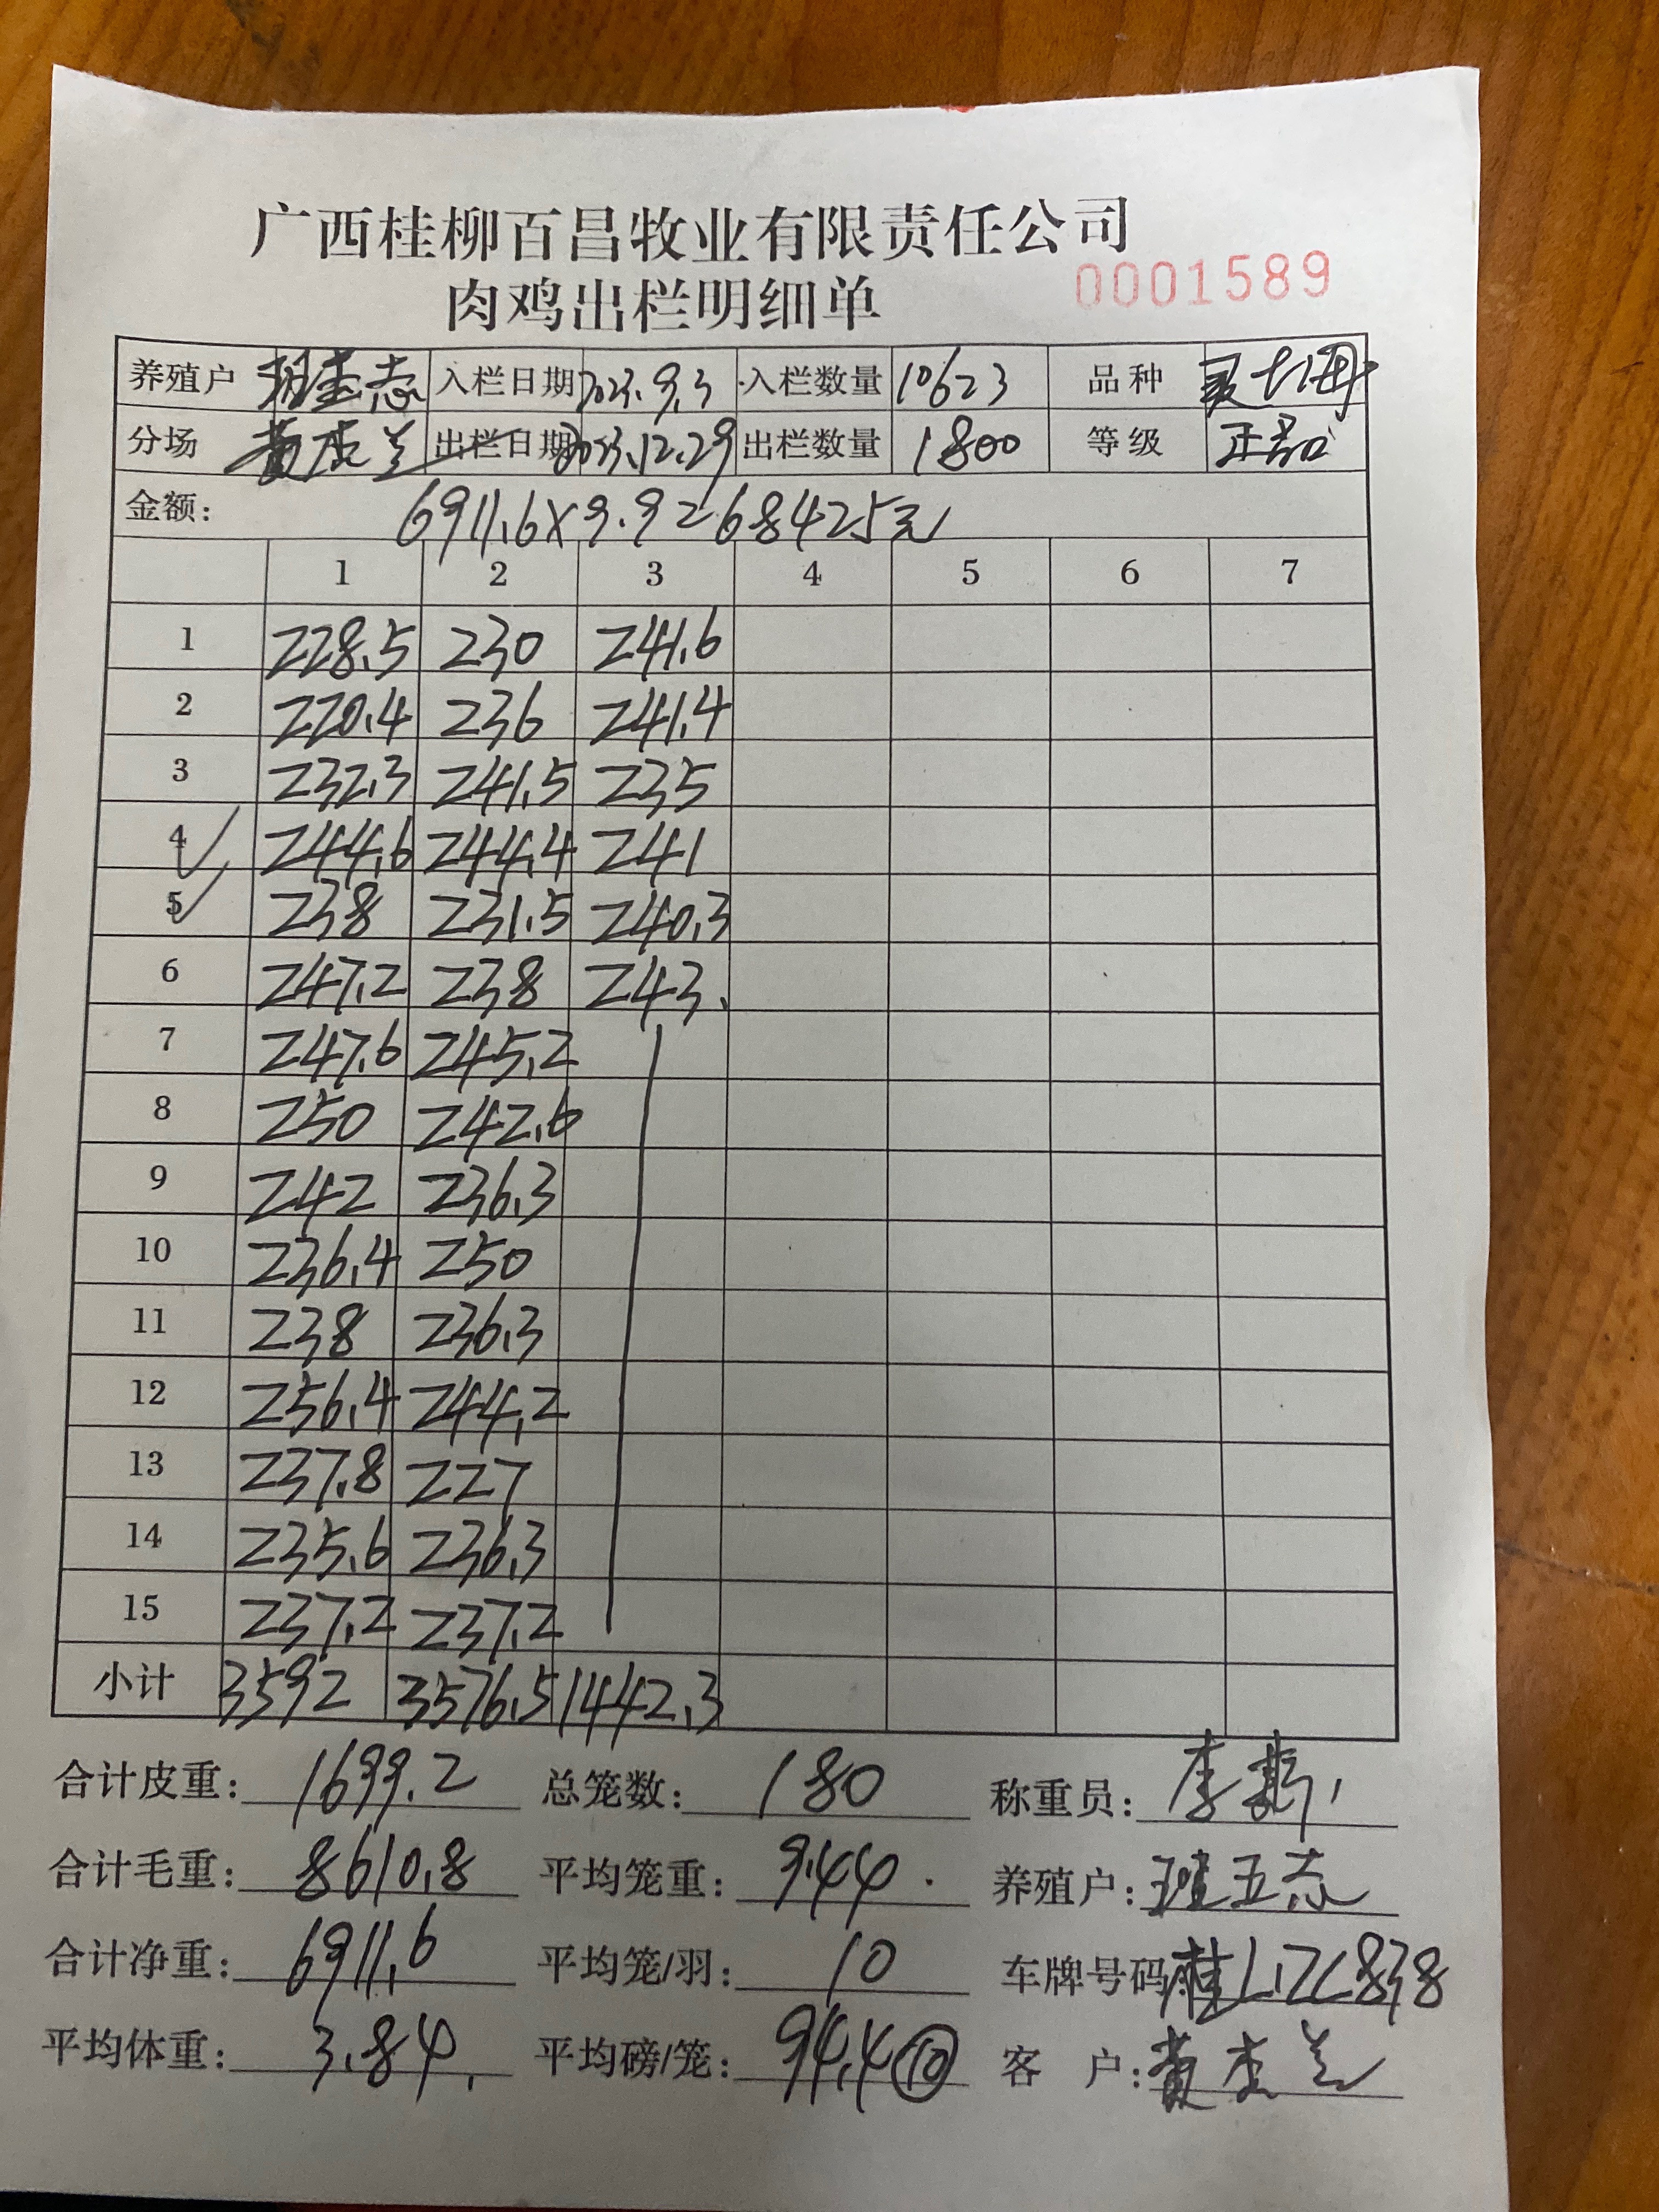 广西桂柳百昌牧业有限责任公司
肉鸡出栏明细单
0001589
养殖户 入栏日期 2023.9.3 入栏数量 10623 品种
分场 黄杰兰 出栏日期 2023.12.29 出栏数量 1800 等级 正品
金额: 6911.6×9.9=68425元
1 2 3 4 5 6 7
1 228.5 230 241.6
2 220.4 236 241.4
3 232.3 241.5 235
4 244.6 244.4 241
5 238 231.5 240.3
6 247.2 238 243.
7 247.6 245.2
8 250 242.6
9 242 236.3
10 236.4 250
11 238 236.3
12 256.4 244.2
13 237.8 227
14 235.6 236.3
15 237.2 237.2
小计 3592 3576.5 1442.3
合计皮重: 1699.2 总笼数: 180 称重员: 李
合计毛重: 8610.8 平均笼重: 9.44 养殖户: 班五志
合计净重: 6911.6 平均笼/羽: 10 车牌号码 桂L
平均体重: 3.84 平均磅/笼: 94.4 ⑩ 客 户: 黄杰兰